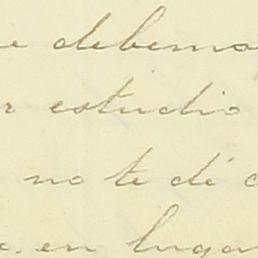 debemo
estudio
no te dé
en lugar